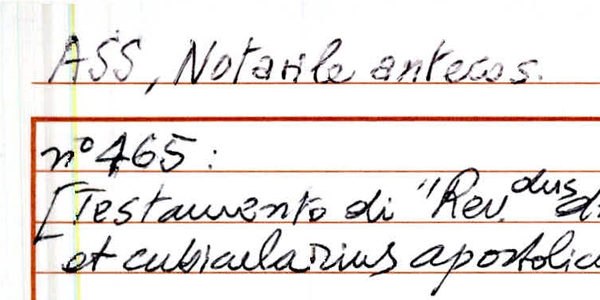 ASS, Notarile antecos.
n° 465:
[Testamento di "Rev.dus
et cubicularius apostolic